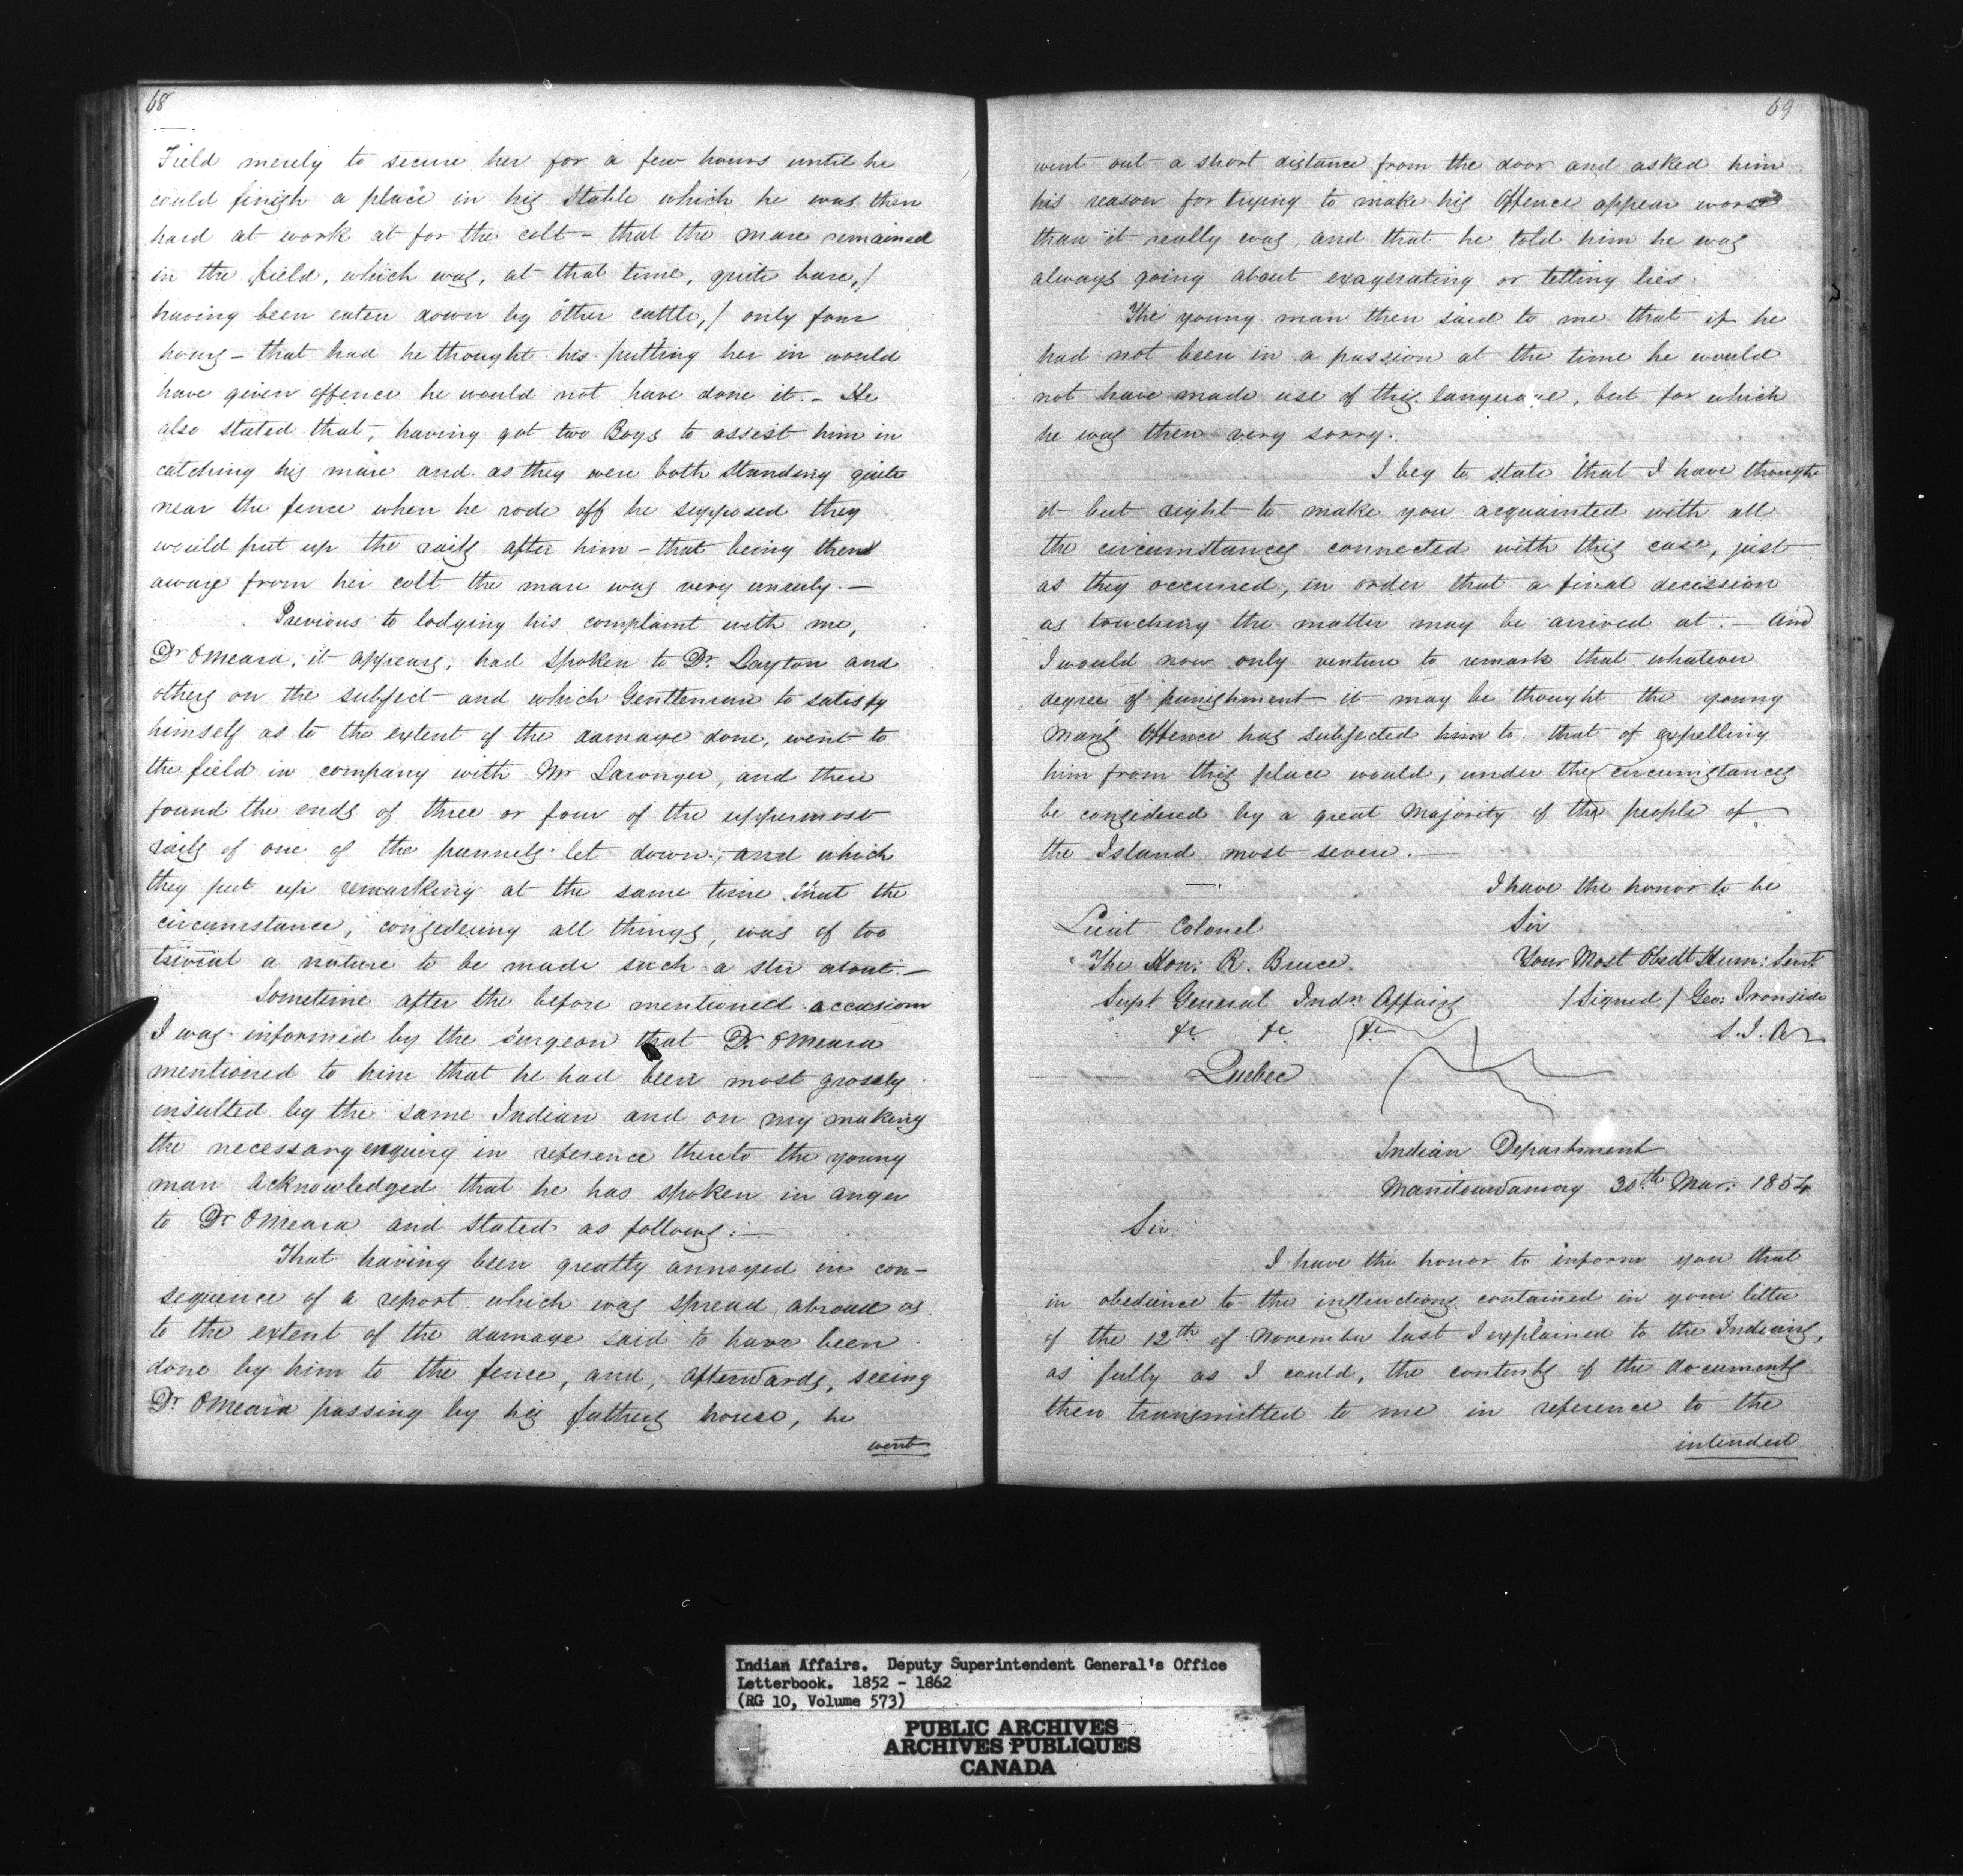 68
Field merely to secure her for a few hours until he
could finish a place in his Stable which he was then
hard at work at for the colt - that the mare remained
in the field, which was, at that time, quite bare, /
having been eaten down by other cattle, / only four
hours - that had he thought his putting her in would
have given offence he would not have done it. - He
also stated that, having got two Boys to assist him in
catching his mare and as they were both standing quite
near the fence when he rode off he supposed they
would put up the rails after him - that being then
away from her colt the mare was very unruly. -
Previous to lodging his complaint with me,
Dr OMeara, it appears, had spoken to Dr. Layton and
others on the subject - and which Gentleman to satisfy
himself as to the extent of the damage done, went to
the field in company with Mr Laronger, and there
found the ends of three or four of the uppermost
rails of one of the pannels let down, and which
they put up remarking at the same time that the
circumstance, considering all things, was of too
trivial a nature to be made such a stir about. -
Sometime after the before mentioned occasion
I was informed by the surgeon that Dr. OMeara
mentioned to him that he had been most grossly
insulted by the same Indian and on my making
the necessary enquiry in reference thereto the young
man acknowledged that he has spoken in anger
to Dr OMeara and stated as follows: -
That having been greatly annoyed in con-
sequence of a report which was spread abroad as
to the extent of the damage said to have been
done by him to the fence, and, afterwards, seeing
Dr. OMeara passing by his fathers house, he
went
69
went out a short distance from the door and asked him
his reason for trying to make his Offence appear worse
than it really was, and that he told him he was
always going about exagerating or telling lies.
The young man then said to me that if he
had not been in a passion at the time he would
not have made use of this language, but for which
he was then very sorry.
I beg to state that I have thought
it but right to make you acquainted with all
the circumstances connected with this case, just
as they occurred, in order that a final decission
as touching the matter may be arrived at. - And
I would now only venture to remark that whatever
degree of punishment it may be thought the young
man's Offence has subjected him to, that of expelling
him from this place would, under the circumstances
be considered by a great Majority of the people of
the Island most severe. -
I have the honor to be
Lieut Colonel
Sir
The Hon: R. Bruce.
Your Most Obedt Hum: Servt
Supt General Indn Affairs
/ Signed / Geo: Ironside
&c &c &c
S. I. A
Quebec
Indian Department
Manitowaning 30th Mar: 1854
Sir
I have the honor to inform you that
in obedience to the instructions contained in your letter
of the 12th of November last I explained to the Indians,
as fully as I could, the contents of the documents
then transmitted to me in reference to the
intended
Indian Affairs. Deputy Superintendent General's Office
Letterbook. 1852 - 1862
(RG 10, Volume 573)
PUBLIC ARCHIVES
ARCHIVES PUBLIQUES
CANADA